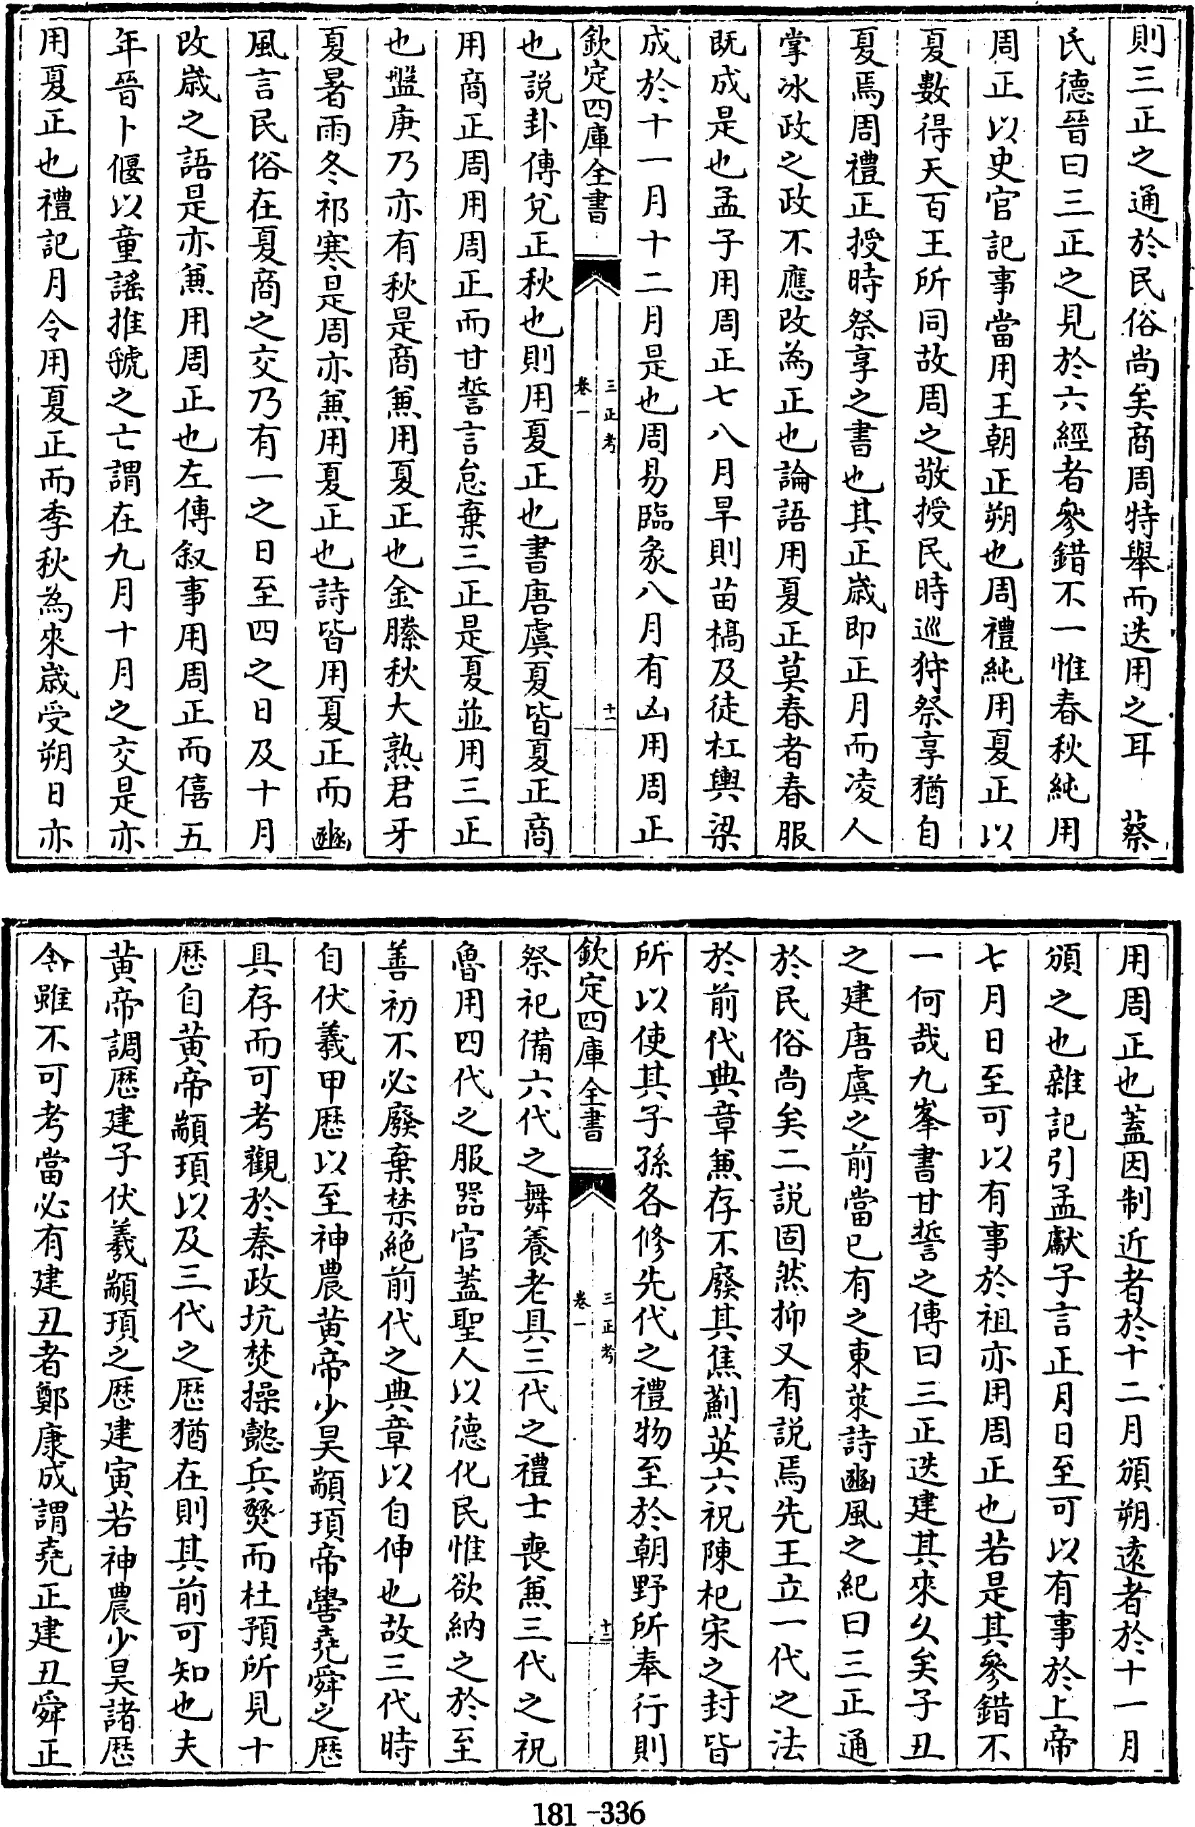 則三正之通於民俗尚矣商周特舉而迭用之耳　蔡
氏德晉曰三正之見於六經者參錯不一惟春秋純用
周正以史官記事當用王朝正朔也周禮純用夏正以
夏數得天百王所同故周之敬授民時巡狩祭享猶自
夏焉周禮正授時祭享之書也其正歲即正月而凌人
掌冰政之政不應改為正也論語用夏正莫春者春服
既成是也孟子用周正七八月旱則苗槁及徒杠輿梁
成於十一月十二月是也周易臨彖八月有凶用周正
欽定四庫全書
三正考
卷一
十一
也說卦傳兌正秋也則用夏正也書唐虞夏皆夏正商
用商正周用周正而甘誓言怠棄三正是夏並用三正
也盤庚乃亦有秋是商兼用夏正也金縢秋大熟君牙
夏暑雨冬祁寒是周亦兼用夏正也詩皆用夏正而豳
風言民俗在夏商之交乃有一之日至四之日及十月
改歲之語是亦兼用周正也左傳叙事用周正而僖五
年晉卜偃以童謠推虢之亡謂在九月十月之交是亦
用夏正也禮記月令用夏正而季秋為來歲受朔日亦
用周正也蓋因制近者於十二月頒朔遠者於十一月
頒之也雜記引孟獻子言正月日至可以有事於上帝
七月日至可以有事於祖亦用周正也若是其參錯不
一何哉九峯書甘誓之傳曰三正迭建其來久矣子丑
之建唐虞之前當已有之東萊詩豳風之紀曰三正通
於民俗尚矣二說固然抑又有說焉先王立一代之法
於前代典章兼存不廢其焦薊英六祝陳杞宋之封皆
所以使其子孫各修先代之禮物至於朝野所奉行則
欽定四庫全書
三正考
卷一
十二
祭祀備六代之舞養老具三代之禮士喪兼三代之祝
魯用四代之服器官蓋聖人以德化民惟欲納之於至
善初不必廢棄禁絶前代之典章以自伸也故三代時
自伏義甲歷以至神農黃帝少昊顓頊帝嚳堯舜之歷
具存而可考觀於秦政坑焚操懿兵燹而杜預所見十
歷自黃帝顓頊以及三代之歷猶在則其前可知也夫
黃帝調歷建子伏羲顓頊之歷建寅若神農少昊諸歷
今雖不可考當必有建丑者鄭康成謂堯正建丑舜正
181-336